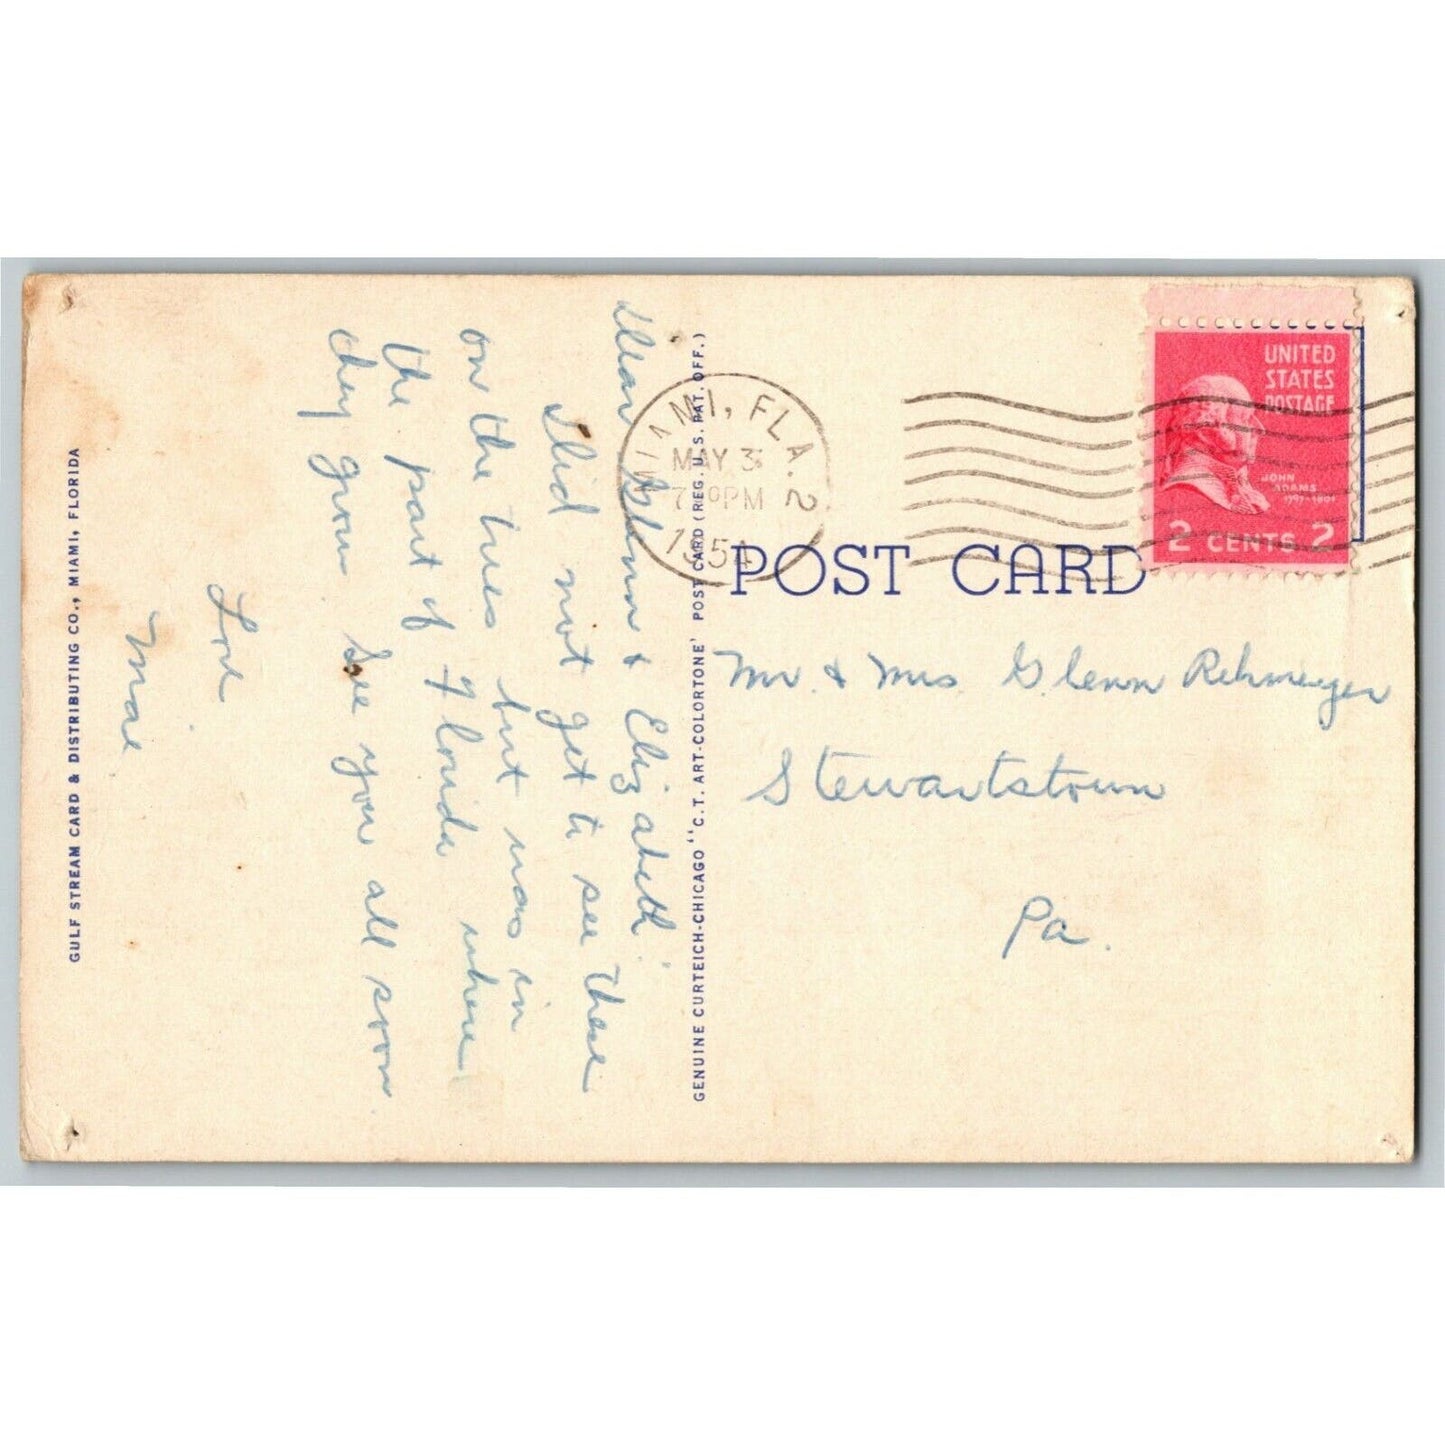 Dear Glenn & Elizabeth
Did not get to see these
on the trees but was in
the part of Florida where
they grow. See you all soon.
Love
Mae
GULF STREAM CARD & DISTRIBUTING CO., MIAMI, FLORIDA
GENUINE CURTEICH-CHICAGO "C.T. ART-COLORTONE" POST CARD (REG. U.S. PAT. OFF.)
MIAMI, FLA. 2
MAY 3
PM
1954
UNITED
STATES
POSTAGE
JOHN
ADAMS
1797-1801
2 CENTS 2
POST CARD
Mr. & Mrs. Glenn Rehmeyer
Stewartstown
Pa.